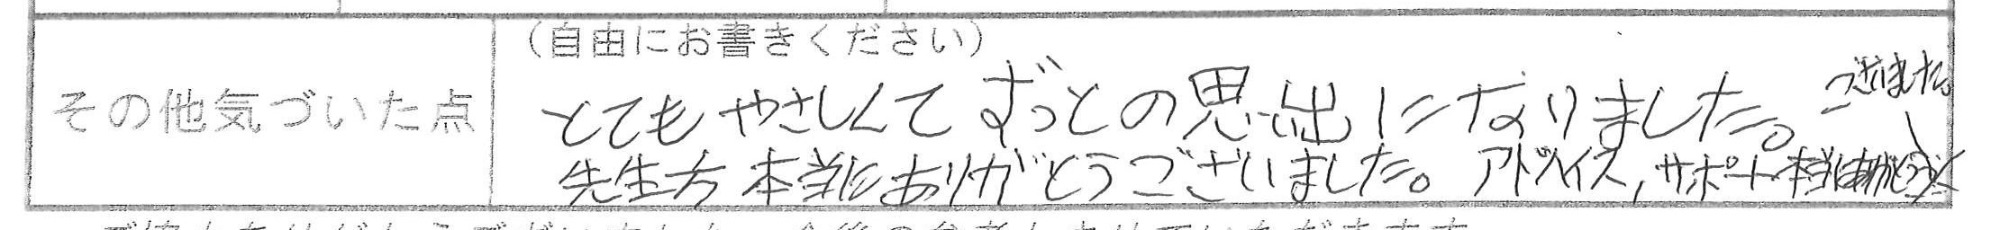 (自由にお書きください)
その他気づいた点
とてもやさしくてずっとの思い出になりました。
先生方本当にありがとうございました。アドバイス,サポート本当にありがとう
ございました。